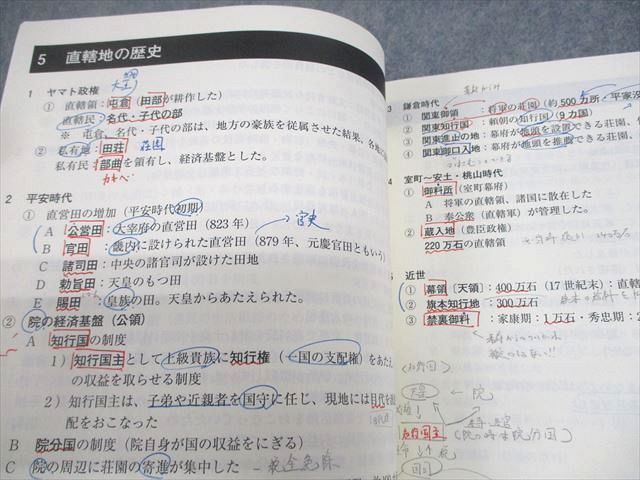 5 直轄地の歴史
1 ヤマト政権
大王
① 直轄領：屯倉（田部が耕作した）
直轄民：名代・子代の部
※ 屯倉、名代・子代の部は、地方の豪族を従属させた結果、各地に
② 私有地：田荘 荘園
私有民：部曲を領有し、経済基盤とした。
カキベ
2 平安時代
① 直営田の増加（平安時代初期）
A 公営田：大宰府の直営田（823 年）
B 官田：畿内に設けられた直営田（879 年、元慶官田ともいう）
C 諸司田：中央の諸官司が設けた田地
D 勅旨田：天皇のもつ田
E 賜田：皇族の田。天皇からあたえられた。
② 院の経済基盤（公領）
A 知行国の制度
1）知行国主として上級貴族に知行権（一国の支配権）をあたえ
の収益を取らせる制度
2）知行国主は、子弟や近親者を国守に任じ、現地には目代を
配をおこなった
B 院分国の制度（院自身が国の収益をにぎる）
C 院の周辺に荘園の寄進が集中した
3 鎌倉時代
① 関東御領：将軍の荘園（約 500 カ所・平家没
② 関東知行国：頼朝の知行国（9 カ国）
③ 関東進止の地：幕府が地頭を設置できる荘園、
④ 関東御口入地：幕府が地頭を推薦できる荘園、
4 室町〜安土・桃山時代
① 御料所（室町幕府）
A 将軍の直轄領、諸国に散在した
B 奉公衆（直轄軍）が管理した。
② 蔵入地（豊臣政権）
220 万石の直轄領
5 近世
① 幕領（天領）：400 万石（17 世紀末）：直轄
② 旗本知行地：300 万石
③ 禁裏御料：家康期：1 万石・秀忠期：2
天皇 ← 院
知行国主（院の時は院分国）
国司